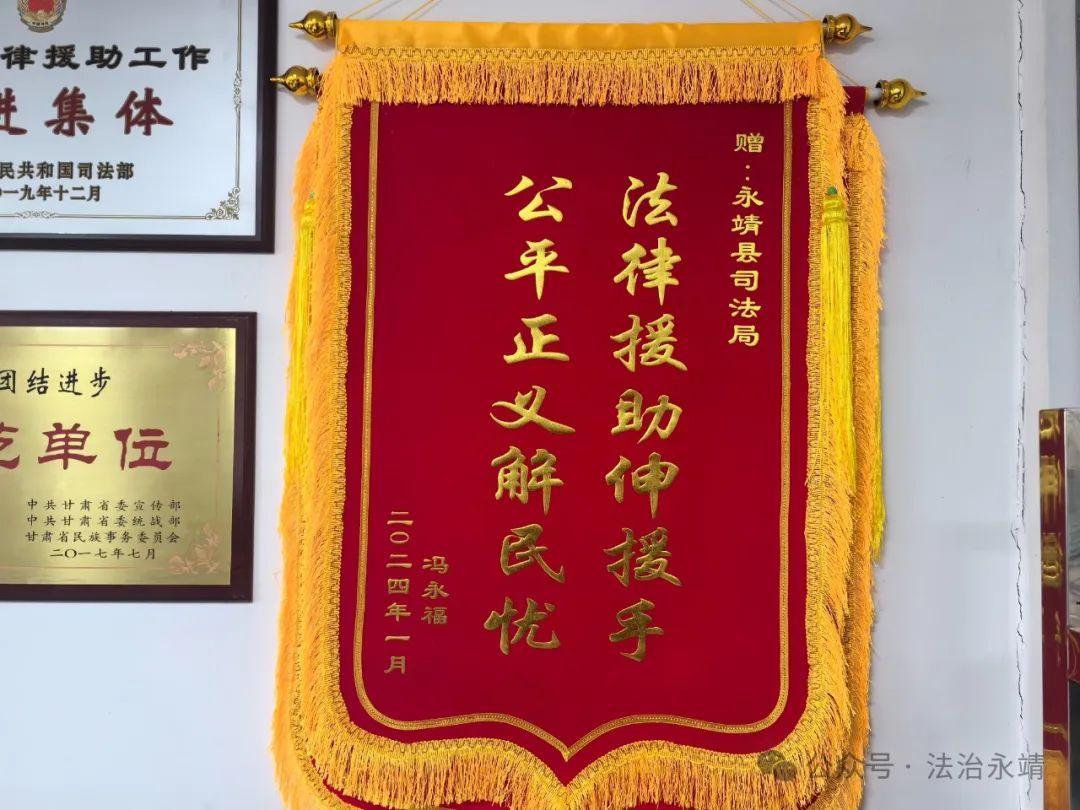 律援助工作
进集体
民共和国司法部
〇一九年十二月
团结进步
单位
中共甘肃省委宣传部
中共甘肃省委统战部
甘肃省民族事务委员会
二〇一七年七月
赠：永靖县司法局
法律援助伸援手
公平正义解民忧
冯永福
二〇二四年一月
公众号·法治永靖